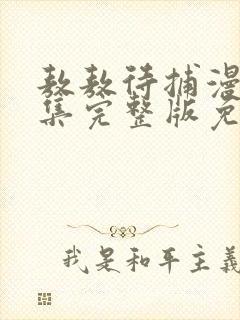 敖敖待捕漫
集完整版免
我是和平主義